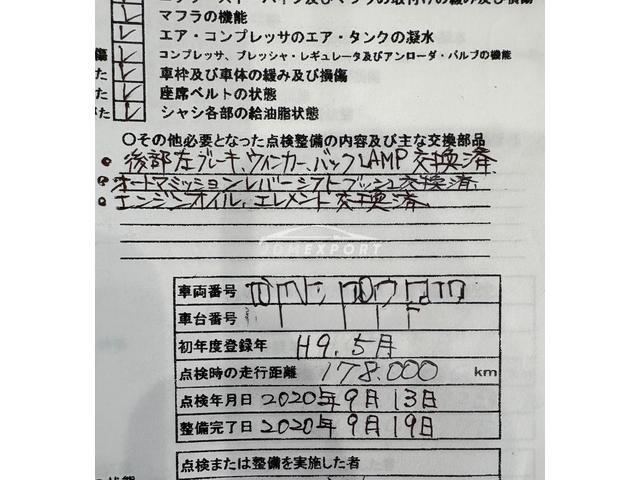 マフラの機能
エア・コンプレッサのエア・タンクの凝水
傷 コンプレッサ、プレッシャ・レギュレータ及びアンローダ・バルブの機能
た 車枠及び車体の緩み及び損傷
座席ベルトの状態
た シャシ各部の給油脂状態
○その他必要となった点検整備の内容及び主な交換部品
• 後部左ブレーキ、ウィンカー、バックLAMP交換済
• オートマミッションレバーシフトブッシュ交換済
• エンジンオイル、エレメント交換済
EXPORT
車両番号
車台番号
初年度登録年 H9.5月
点検時の走行距離 178.000 km
点検年月日 2020年9月13日
整備完了日 2020年9月19日
点検または整備を実施した者
の状態